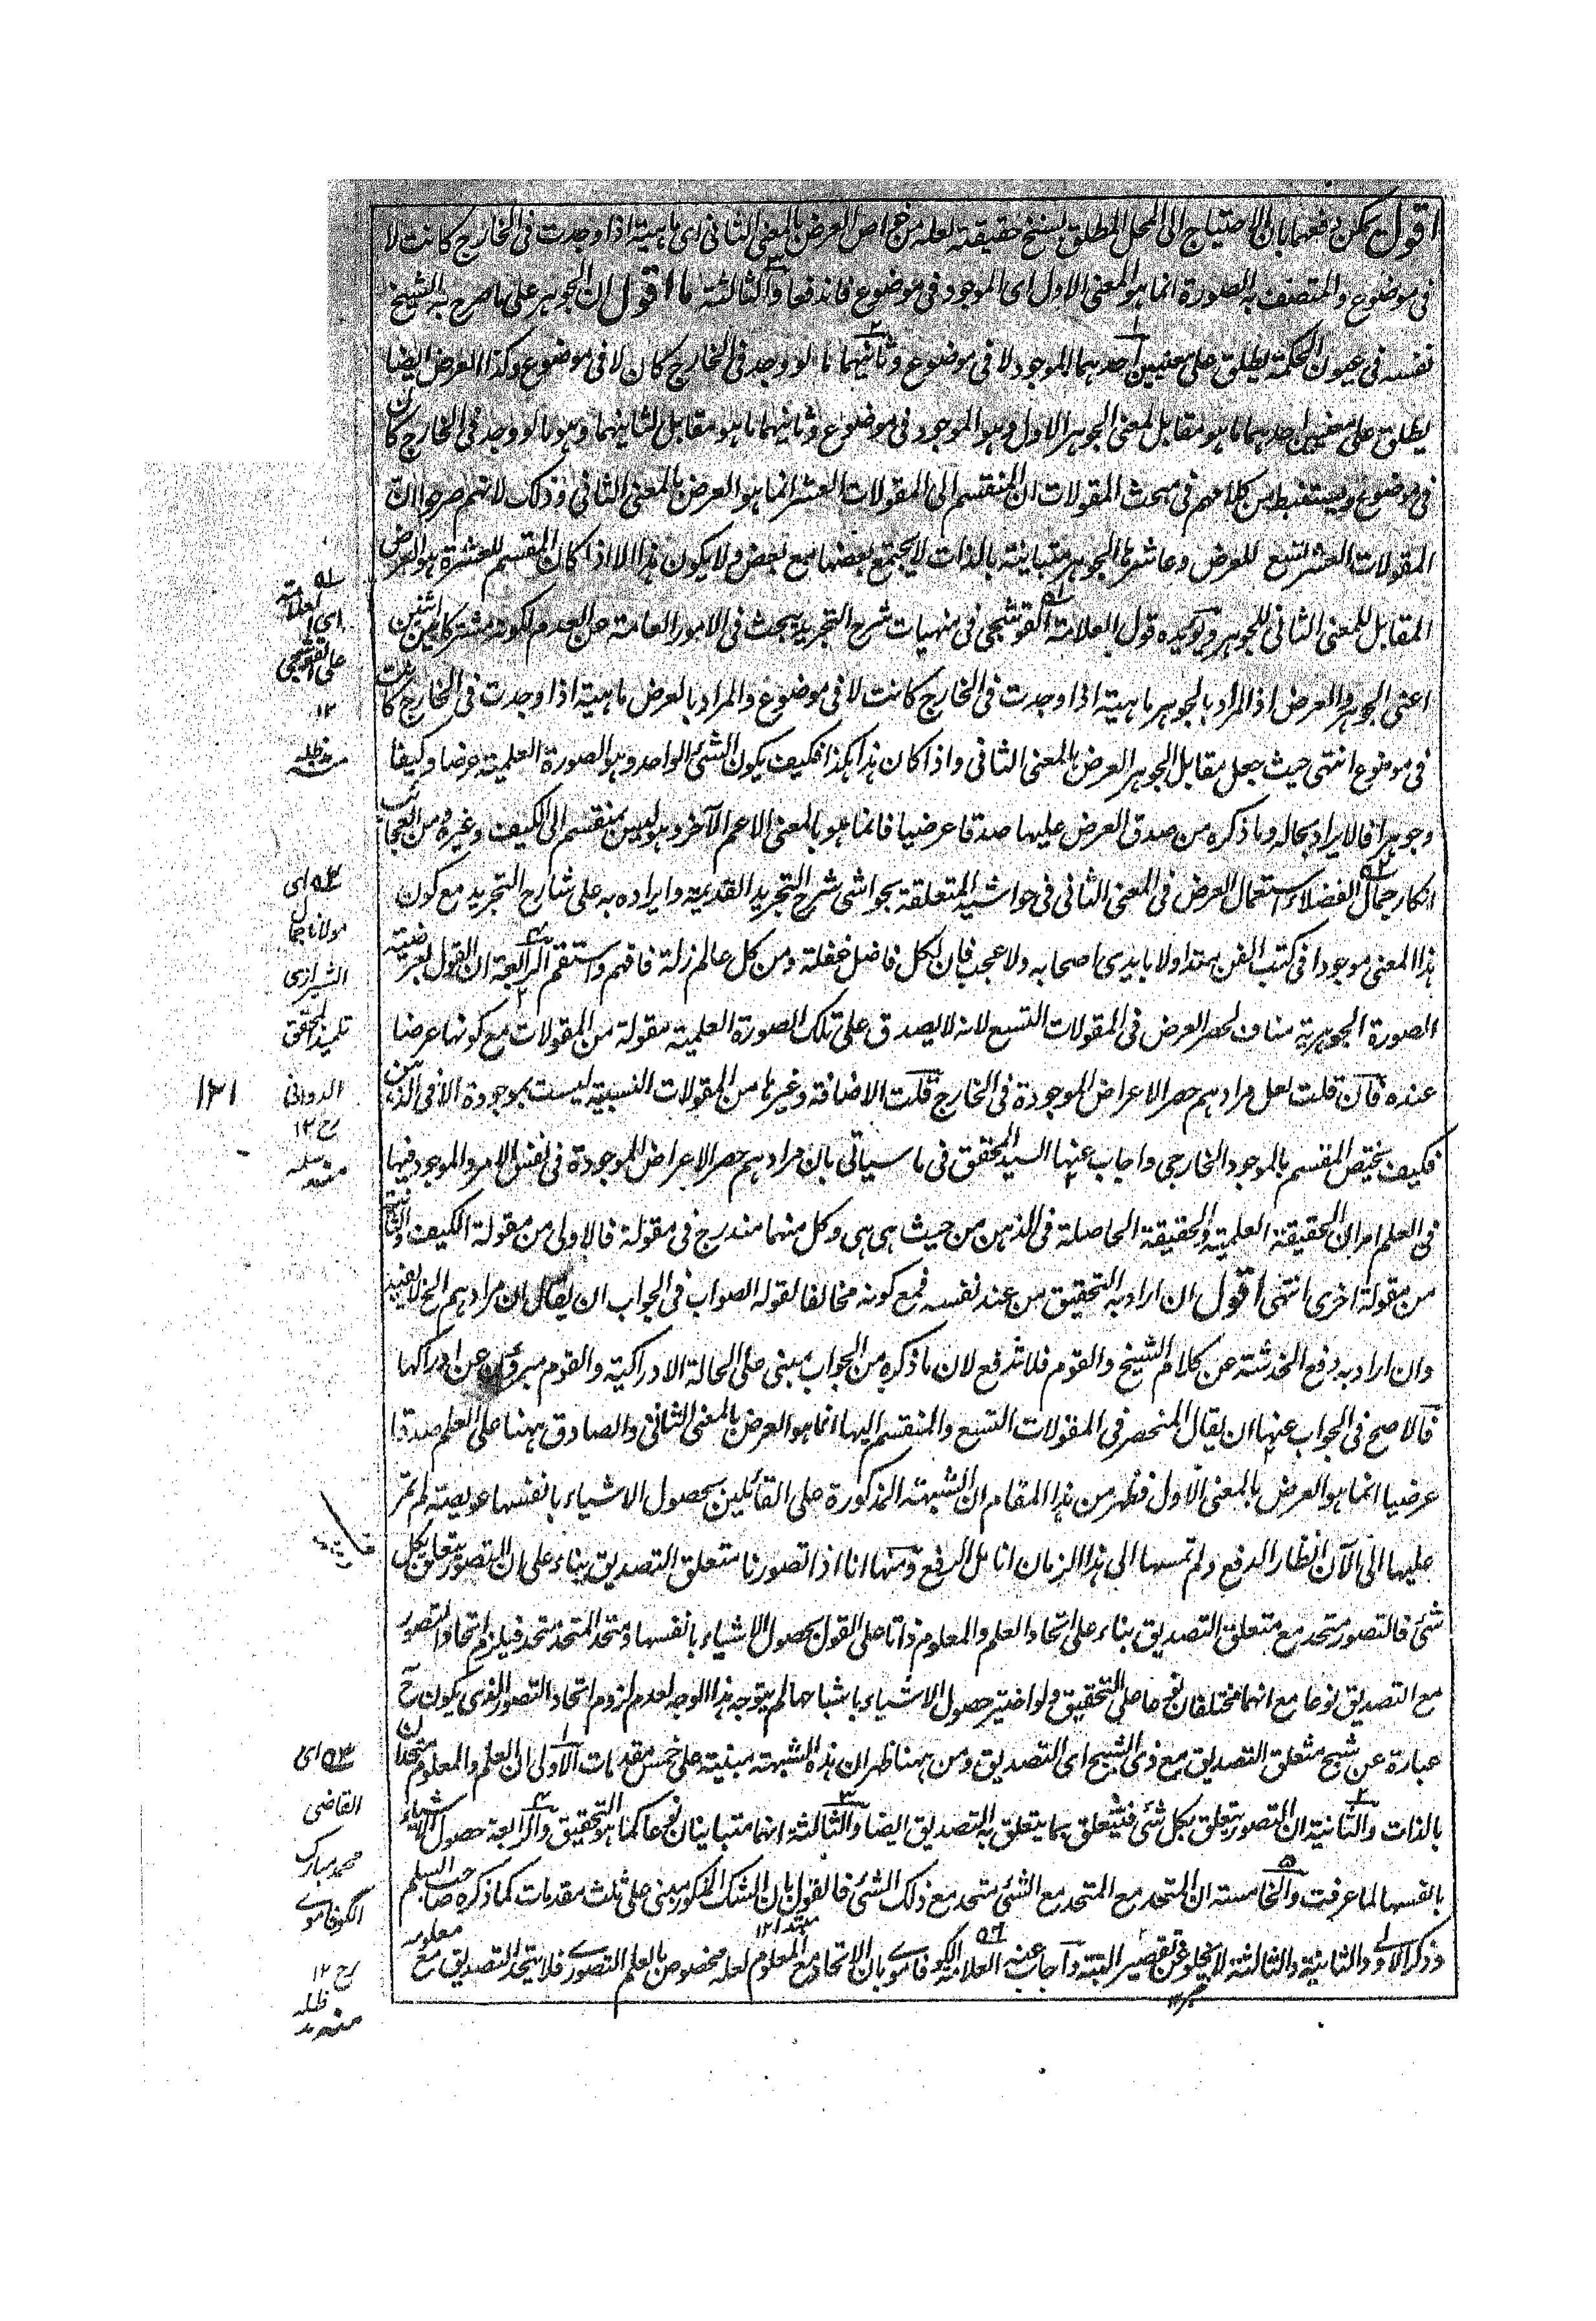 اقول يمكن دفعهما بان الاحتياج الى المحل المطلق لسنخ حقيقته لعله من خواص العرض بالمعنى الثانى اى ماهية اذا وجدت فى الخارج كانت لا
فى موضوع والمتصف به الصورة انما هو المعنى الاول اى الموجود فى موضوع فاندفعا والثالثة ما اقول ان الجوهر على ما صرح به الشيخ
نفسه فى عيون الحكمة يطلق على معنيين احدهما الموجود لا فى موضوع وثانيهما ما لو وجد فى الخارج كان لا فى موضوع وكذا العرض ايضا
يطلق على معنيين احدهما ما هو مقابل لمعنى الجوهر الاول وهو الموجود فى موضوع وثانيهما ما هو مقابل لثانيهما وهو ما لو وجد فى الخارج كان
فى موضوع ويستنبط من كلامهم فى مبحث المقولات ان المنقسم الى المقولات العشر انما هو العرض بالمعنى الثانى وذلك لانهم صرحوا ان
المقولات العشر تسع للعرض وعاشرها الجوهر متباينة بالذات لا يجتمع بعضها مع بعض ولا يكون هذا الا اذا كان المقسم للعشرة هو العرض
المقابل للمعنى الثانى للجوهر ويؤيده قول العلامة القوشجى فى منهيات شرح التجريد يبحث فى الامور العامة عن العدم لكونه مشتركا بين اثنين
اعنى الجوهر والعرض اذ المراد بالجوهر ماهية اذا وجدت فى الخارج كانت لا فى موضوع والمراد بالعرض ماهية اذا وجدت فى الخارج كانت
فى موضوع انتهى حيث جعل مقابل الجوهر العرض بالمعنى الثانى واذا كان هذا هكذا فكيف يكون الشئ الواحد وهو الصورة العلمية عرضا وكيفا
وجوهرا فالايراد بحاله وما ذكره من صدق العرض عليها صدقا عرضيا فانما هو بالمعنى الاعم الآخر وهو ليس بمنقسم الى الكيف وغيره ومن العجائب
انكار جمال الفضلاء استعمال العرض فى المعنى الثانى فى حواشيه المتعلقة بحواشى شرح التجريد القديمة وايراده به على شارح التجريد مع كون
هذا المعنى موجودا فى كتب الفن متداولا بايدى اصحابه ولا عجب فان لكل فاضل غفلة ومن كل عالم زلة فافهم واستقم الرابعة ان القول بعرضية
الصورة الجوهرية مناف لحصر العرض فى المقولات التسع لانه لا يصدق على تلك الصورة العلمية مقولة من المقولات مع كونها عرضا
عنده فان قلت لعل مرادهم حصر الاعراض الموجودة فى الخارج قلت الاضافة وغيرها من المقولات النسبية ليست بموجودة الا فى الذهن
فكيف يختص المقسم بالموجود الخارجى واجاب عنها السيد المحقق فى ما سياتى بان مرادهم حصر الاعراض الموجودة فى نفس الامر والموجود فيها
فى العلم امران الحقيقة العلمية والحقيقة الحاصلة فى الذهن من حيث هى هى وكل منهما مندرج فى مقولة فالاولى من مقولة الكيف والثانية
من مقولة اخرى انتهى اقول ان اراد به التحقيق من عند نفسه فمع كونه مخالفا لقوله الصواب فى الجواب ان يقال ان مرادهم الخ لا يفيد
وان اراد به دفع الخدشة عن كلام الشيخ والقوم فلا تندفع لان ما ذكره من الجواب مبنى على الحالة الادراكية والقوم مبرؤن عن ادراكها
فالاصح فى الجواب عنها ان يقال المنحصر فى المقولات التسع والمنقسم اليها انما هو العرض بالمعنى الثانى والصادق ههنا على العلم صدقا
عرضيا انما هو العرض بالمعنى الاول فظهر من هذا المقام ان الشبهة المذكورة على القائلين بحصول الاشياء بانفسها عويصة لم تمر
عليها الى الآن انظار الدفع ولم تمسها الى هذا الزمان انامل الرفع ومنها انا اذا تصورنا متعلق التصديق بناء على ان التصور يتعلق بكل
شئ فالتصور متحد مع متعلق التصديق بناء على اتحاد العلم والمعلوم ذاتا على القول بحصول الاشياء بانفسها ومتحد المتحد متحد فيلزم اتحاد التصور
مع التصديق نوعا مع انهما مختلفان نوعا على التحقيق ولو اختير حصول الاشياء باشباحها لم يتوجه هذا الوجه لعدم لزوم اتحاد التصور الذى يكون ح
عبارة عن شبح متعلق التصديق مع ذى الشبح اى التصديق ومن ههنا ظهر ان هذه الشبهة مبنية على خمس مقدمات الاولى ان العلم والمعلوم متحدان
بالذات والثانية ان التصور يتعلق بكل شئ فيتعلق بما يتعلق به التصديق ايضا والثالثة انهما متباينان نوعا كما هو التحقيق والرابعة حصول الاشياء
بانفسها لما عرفت والخامسة ان المتحد مع المتحد مع الشئ متحد مع ذلك الشئ فالقول بان الشك المذكور مبنى على ثلث مقدمات كما ذكره صاحب السلم
وذكر الاولى والثانية والثالثة لا يخلو عن تقصير البتة واجاب عنه العلامة الكوفاموى بان الاتحاد مع المعلوم لعله مخصوص بالعلم التصورى فلا يتحد التصديق مع معلومه
مبتدا ١٢
خبر ١٢
اى العلامة
على القوشجى
١٢
منه مد ظله
اى
مولانا جمال
الشيرازى
تلميذ المحقق
الدوانى
رح ١٢
منه سلمه
١٢١
اى
القاضى
محمد مبارك
الكوفاموى
رح ١٢
منه مد ظله